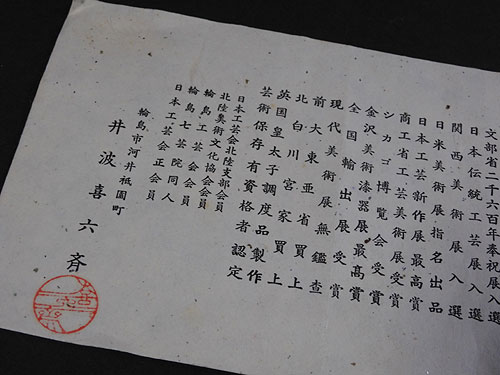 文部省二千六百年奉祝展入選
日本伝統工芸展入選
関西美術展入選
日米美術展指名出品
日本工芸新作展最高賞
商工省工芸美術展受賞
シカゴ博覧会受賞
金沢美術漆器展最髙賞
全国輸出展受賞
現代美術展無鑑査
前大東亜省買上
北白川宮家買上
英国皇太子調度品製作
芸術保存有資格者認定
日本工芸会北陸支部会員
北陸美術文化協会会員
輪島工芸会会員
輪島七芸院同人
日本工芸会正会員
輪島市河井祇園町
井波喜六斉